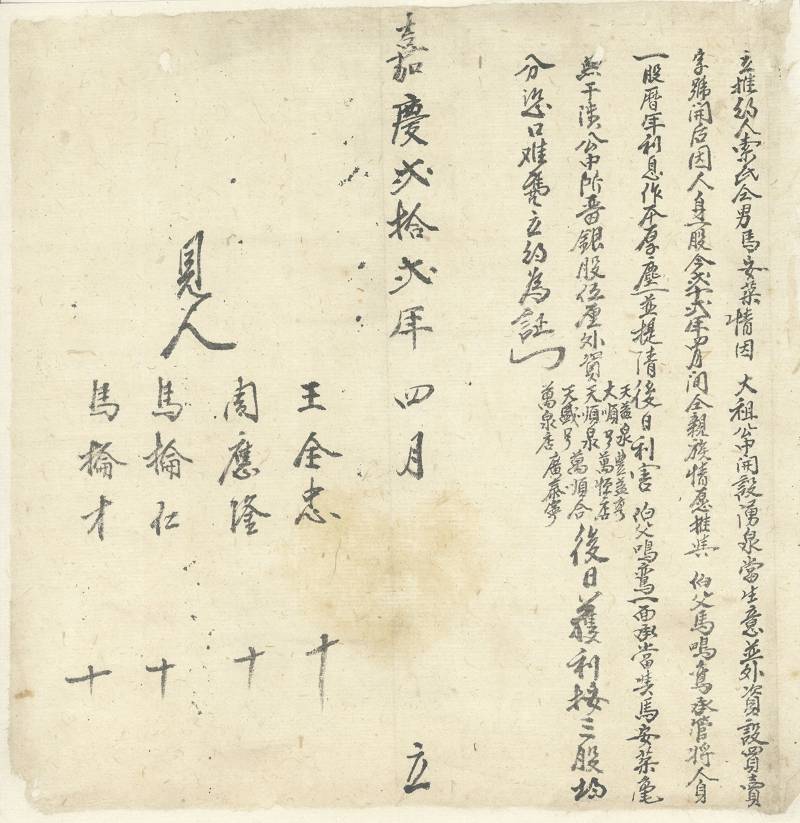 立推約人索氏仝男馬安葉情因　大祖公中開設湧泉當生意並外資設買賣
字號開后因人身一股今式十式年四月间仝親族情愿推與　伯父馬鳴鸞承管将人身
一股曆年利息作本厚塵並提清後日利害　伯父鳴鸞一面承當與馬安葉毫
無干涉公中所普銀股伍厘外資
天益泉　豊益
大順号　萬恒店
天順泉
天盛号　萬順合
萬泉店　廣泰
後日獲利按三股均
分恐口难凴立約為証
嘉慶弍拾弍年四月　立
見人
王全忠　十
周應隆　十
馬掄仁　十
馬掄才　十